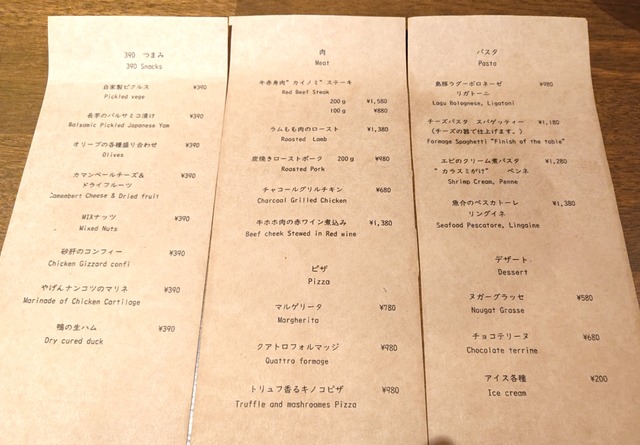 390 つまみ
390 Snacks
自家製ピクルス ¥390
Pickled vege
長芋のバルサミコ漬け ¥390
Balsamic Pickled Japanese Yam
オリーブの各種盛り合わせ ¥390
Olives
カマンベールチーズ&
ドライフルーツ ¥390
Camembert Cheese & Dried fruit
MIXナッツ ¥390
Mixed Nuts
砂肝のコンフィー ¥390
Chicken Gizzard confi
やげんナンコツのマリネ ¥390
Marinade of Chicken Cartilage
鴨の生ハム ¥390
Dry cured duck
肉
Meat
牛赤身肉"カイノミ"ステーキ
Red Beef Steak
200 g ¥1,580
100 g ¥880
ラムもも肉のロースト ¥1,380
Roasted Lamb
炭焼きローストポーク 200 g ¥980
Roasted Pork
チャコールグリルチキン ¥680
Charcoal Grilled Chicken
牛ホホ肉の赤ワイン煮込み ¥1,380
Beef cheek Stewed in Red wine
ピザ
Pizza
マルゲリータ ¥780
Margherita
クアトロフォルマッジ ¥980
Quattro formage
トリュフ香るキノコピザ ¥980
Truffle and mashroomes Pizza
パスタ
Pasta
島豚ラグーボロネーゼ ¥980
リガトーニ
Lagu Bolognese, Ligatoni
チーズパスタ スパゲッティー ¥1,180
(チーズの器で仕上げます。)
Formage Spaghetti "Finish of the table"
エビのクリーム煮パスタ ¥1,280
"カラスミがけ" ペンネ
Shrimp Cream, Penne
魚介のペスカトーレ ¥1,380
リングイネ
Seafood Pescatore, Lingaine
デザート
Dessert
ヌガーグラッセ ¥580
Nougat Grasse
チョコテリーヌ ¥680
Chocolate terrine
アイス各種 ¥200
Ice cream